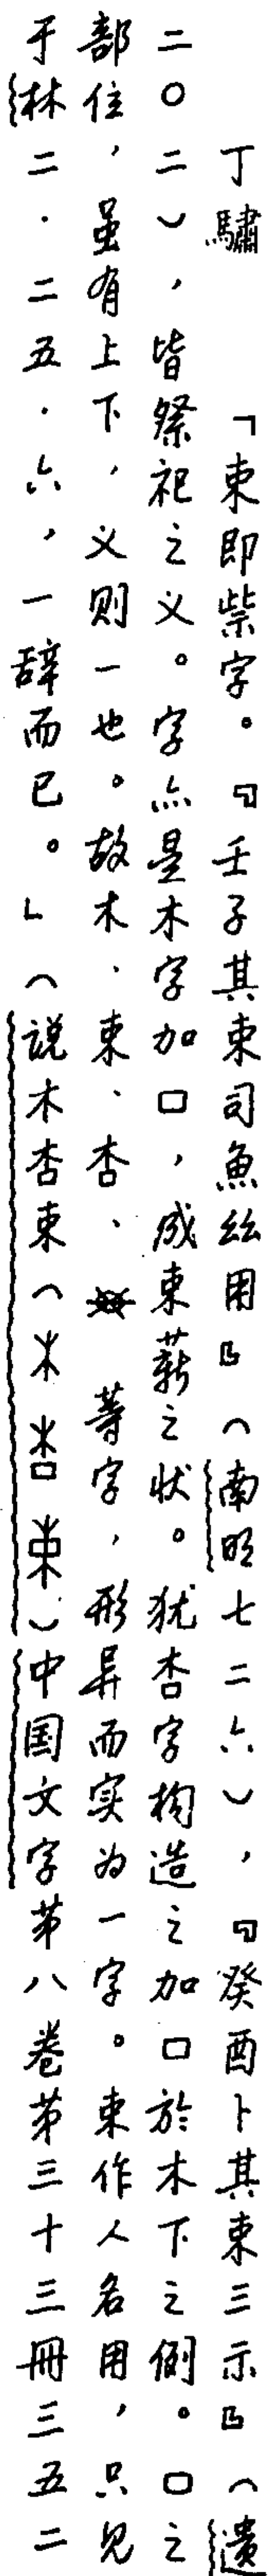 丁驌　「束即祡字。『壬子其束司魚絲用』（南明七二六），『癸酉卜其束三示』（遺
二〇二），皆祭祀之义。字亦是木字加口，成束薪之状。犹杏字构造之加口於木下之例。口之
部位，虽有上下，义则一也。故木、束、杏、等字，形异而实为一字。束作人名用，只见
于林二·二五·六，一辞而已。」（说木杏束（）中国文字第八卷第三十三册三五二